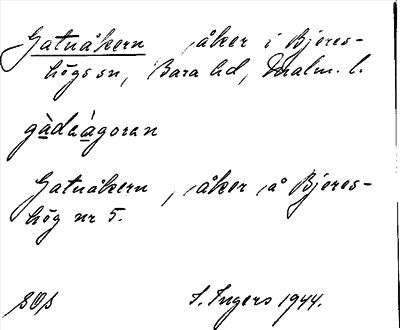 Gatuåkern, åker i Bjeres-
högs sn, Bara hd, Malm. l.
gàdeàgoran
Gatuåkern, åker å Bjeres-
hög nr 5.
SOS I. Ingers 1944.